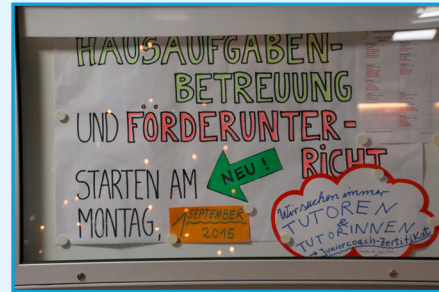 HAUSAUFGABEN-
BETREUUNG
UND FÖRDERUNTER-
RICHT
STARTEN AM
NEU!
MONTAG,
1 SEPTEMBER
2015
Wir suchen immer
TUTOREN
&
TUTORINNEN
→ Juniorcoach-Zertifikat